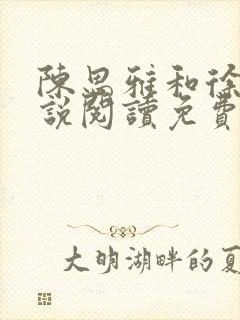 陳思雅和徐
說閱讀免費
大明湖畔的夏